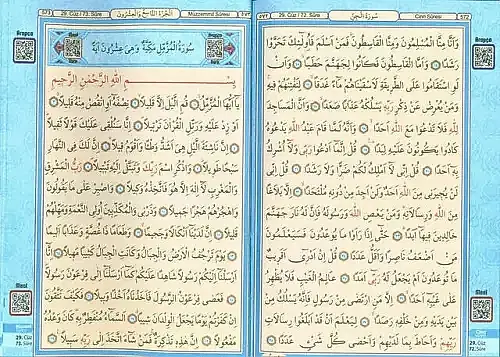 572
سُورَةُ الْجِنِّ
Cinn Sûresi
29. Cüz / 72. Sûre
وَاَنَّا مِنَّا الْمُسْلِمُونَ وَمِنَّا الْقَاسِطُونَ فَمَنْ اَسْلَمَ فَاُولٰٓئِكَ تَحَرَّوْا
رَشَدًا وَاَمَّا الْقَاسِطُونَ فَكَانُوا لِجَهَنَّمَ حَطَبًا وَاَنْ
لَوِ اسْتَقَامُوا عَلَى الطَّرِيقَةِ لَاَسْقَيْنَاهُمْ مَٓاءً غَدَقًا لِنَفْتِنَهُمْ فِيهِ
وَمَنْ يُعْرِضْ عَنْ ذِكْرِ رَبِّهِ يَسْلُكْهُ عَذَابًا صَعَدًا وَاَنَّ الْمَسَاجِدَ
لِلّٰهِ فَلَا تَدْعُوا مَعَ اللّٰهِ اَحَدًا وَاَنَّهُ لَمَّا قَامَ عَبْدُ اللّٰهِ يَدْعُوهُ
كَادُوا يَكُونُونَ عَلَيْهِ لِبَدًا قُلْ اِنَّمَٓا اَدْعُوا رَبِّي وَلَٓا اُشْرِكُ
بِهِ اَحَدًا قُلْ اِنِّي لَٓا اَمْلِكُ لَكُمْ ضَرًّا وَلَا رَشَدًا قُلْ اِنِّي
لَنْ يُجِيرَنِي مِنَ اللّٰهِ اَحَدٌ وَلَنْ اَجِدَ مِنْ دُونِهِ مُلْتَحَدًا اِلَّا بَلَاغًا
مِنَ اللّٰهِ وَرِسَالَاتِهِ وَمَنْ يَعْصِ اللّٰهَ وَرَسُولَهُ فَاِنَّ لَهُ نَارَ جَهَنَّمَ
خَالِدِينَ فِيهَٓا اَبَدًا حَتّٰٓى اِذَا رَاَوْا مَا يُوعَدُونَ فَسَيَعْلَمُونَ
مَنْ اَضْعَفُ نَاصِرًا وَاَقَلُّ عَدَدًا قُلْ اِنْ اَدْرِي اَقَرِيبٌ
مَا تُوعَدُونَ اَمْ يَجْعَلُ لَهُ رَبِّي اَمَدًا عَالِمُ الْغَيْبِ فَلَا يُظْهِرُ
عَلٰى غَيْبِهِ اَحَدًا اِلَّا مَنِ ارْتَضٰى مِنْ رَسُولٍ فَاِنَّهُ يَسْلُكُ مِنْ
بَيْنِ يَدَيْهِ وَمِنْ خَلْفِهِ رَصَدًا لِيَعْلَمَ اَنْ قَدْ اَبْلَغُوا رِسَالَاتِ
رَبِّهِمْ وَاَحَاطَ بِمَا لَدَيْهِمْ وَاَحْصٰى كُلَّ شَيْءٍ عَدَدًا
Arapça
Meal
29. Cüz
72. Sûre
Müzzemmil Sûresi
اَلْجُزْءُ التَّاسِعُ وَالْعِشْرُونَ
29. Cüz / 73. Sûre
573
سُورَةُ الْمُزَّمِّلِ مَكِّيَّةٌ وَهِيَ عِشْرُونَ اٰيَةً
بِسْمِ اللّٰهِ الرَّحْمٰنِ الرَّحِيمِ
يَٓا اَيُّهَا الْمُزَّمِّلُ قُمِ الَّيْلَ اِلَّا قَلِيلًا نِصْفَهُٓ اَوِ انْقُصْ مِنْهُ قَلِيلًا
اَوْ زِدْ عَلَيْهِ وَرَتِّلِ الْقُرْاٰنَ تَرْتِيلًا اِنَّا سَنُلْقِي عَلَيْكَ قَوْلًا ثَقِيلًا
اِنَّ نَاشِئَةَ الَّيْلِ هِيَ اَشَدُّ وَطْـًٔا وَاَقْوَمُ قِيلًا اِنَّ لَكَ فِي النَّهَارِ
سَبْحًا طَوِيلًا وَاذْكُرِ اسْمَ رَبِّكَ وَتَبَتَّلْ اِلَيْهِ تَبْتِيلًا رَبُّ الْمَشْرِقِ
وَالْمَغْرِبِ لَٓا اِلٰهَ اِلَّا هُوَ فَاتَّخِذْهُ وَكِيلًا وَاصْبِرْ عَلٰى مَا يَقُولُونَ
وَاهْجُرْهُمْ هَجْرًا جَمِيلًا وَذَرْنِي وَالْمُكَذِّبِينَ اُولِي النَّعْمَةِ وَمَهِّلْهُمْ
قَلِيلًا اِنَّ لَدَيْنَٓا اَنْكَالًا وَجَحِيمًا وَطَعَامًا ذَا غُصَّةٍ وَعَذَابًا اَلِيمًا
يَوْمَ تَرْجُفُ الْاَرْضُ وَالْجِبَالُ وَكَانَتِ الْجِبَالُ كَثِيبًا مَهِيلًا اِنَّٓا
اَرْسَلْنَٓا اِلَيْكُمْ رَسُولًا شَاهِدًا عَلَيْكُمْ كَمَٓا اَرْسَلْنَٓا اِلٰى فِرْعَوْنَ رَسُولًا
فَعَصٰى فِرْعَوْنُ الرَّسُولَ فَاَخَذْنَاهُ اَخْذًا وَبِيلًا فَكَيْفَ تَتَّقُونَ
اِنْ كَفَرْتُمْ يَوْمًا يَجْعَلُ الْوِلْدَانَ شِيبًا اَلسَّمَٓاءُ مُنْفَطِرٌ بِهِ كَانَ وَعْدُهُ
مَفْعُولًا اِنَّ هٰذِهِ تَذْكِرَةٌ فَمَنْ شَٓاءَ اتَّخَذَ اِلٰى رَبِّهِ سَبِيلًا
Arapça
Meal
29. Cüz
73. Sûre